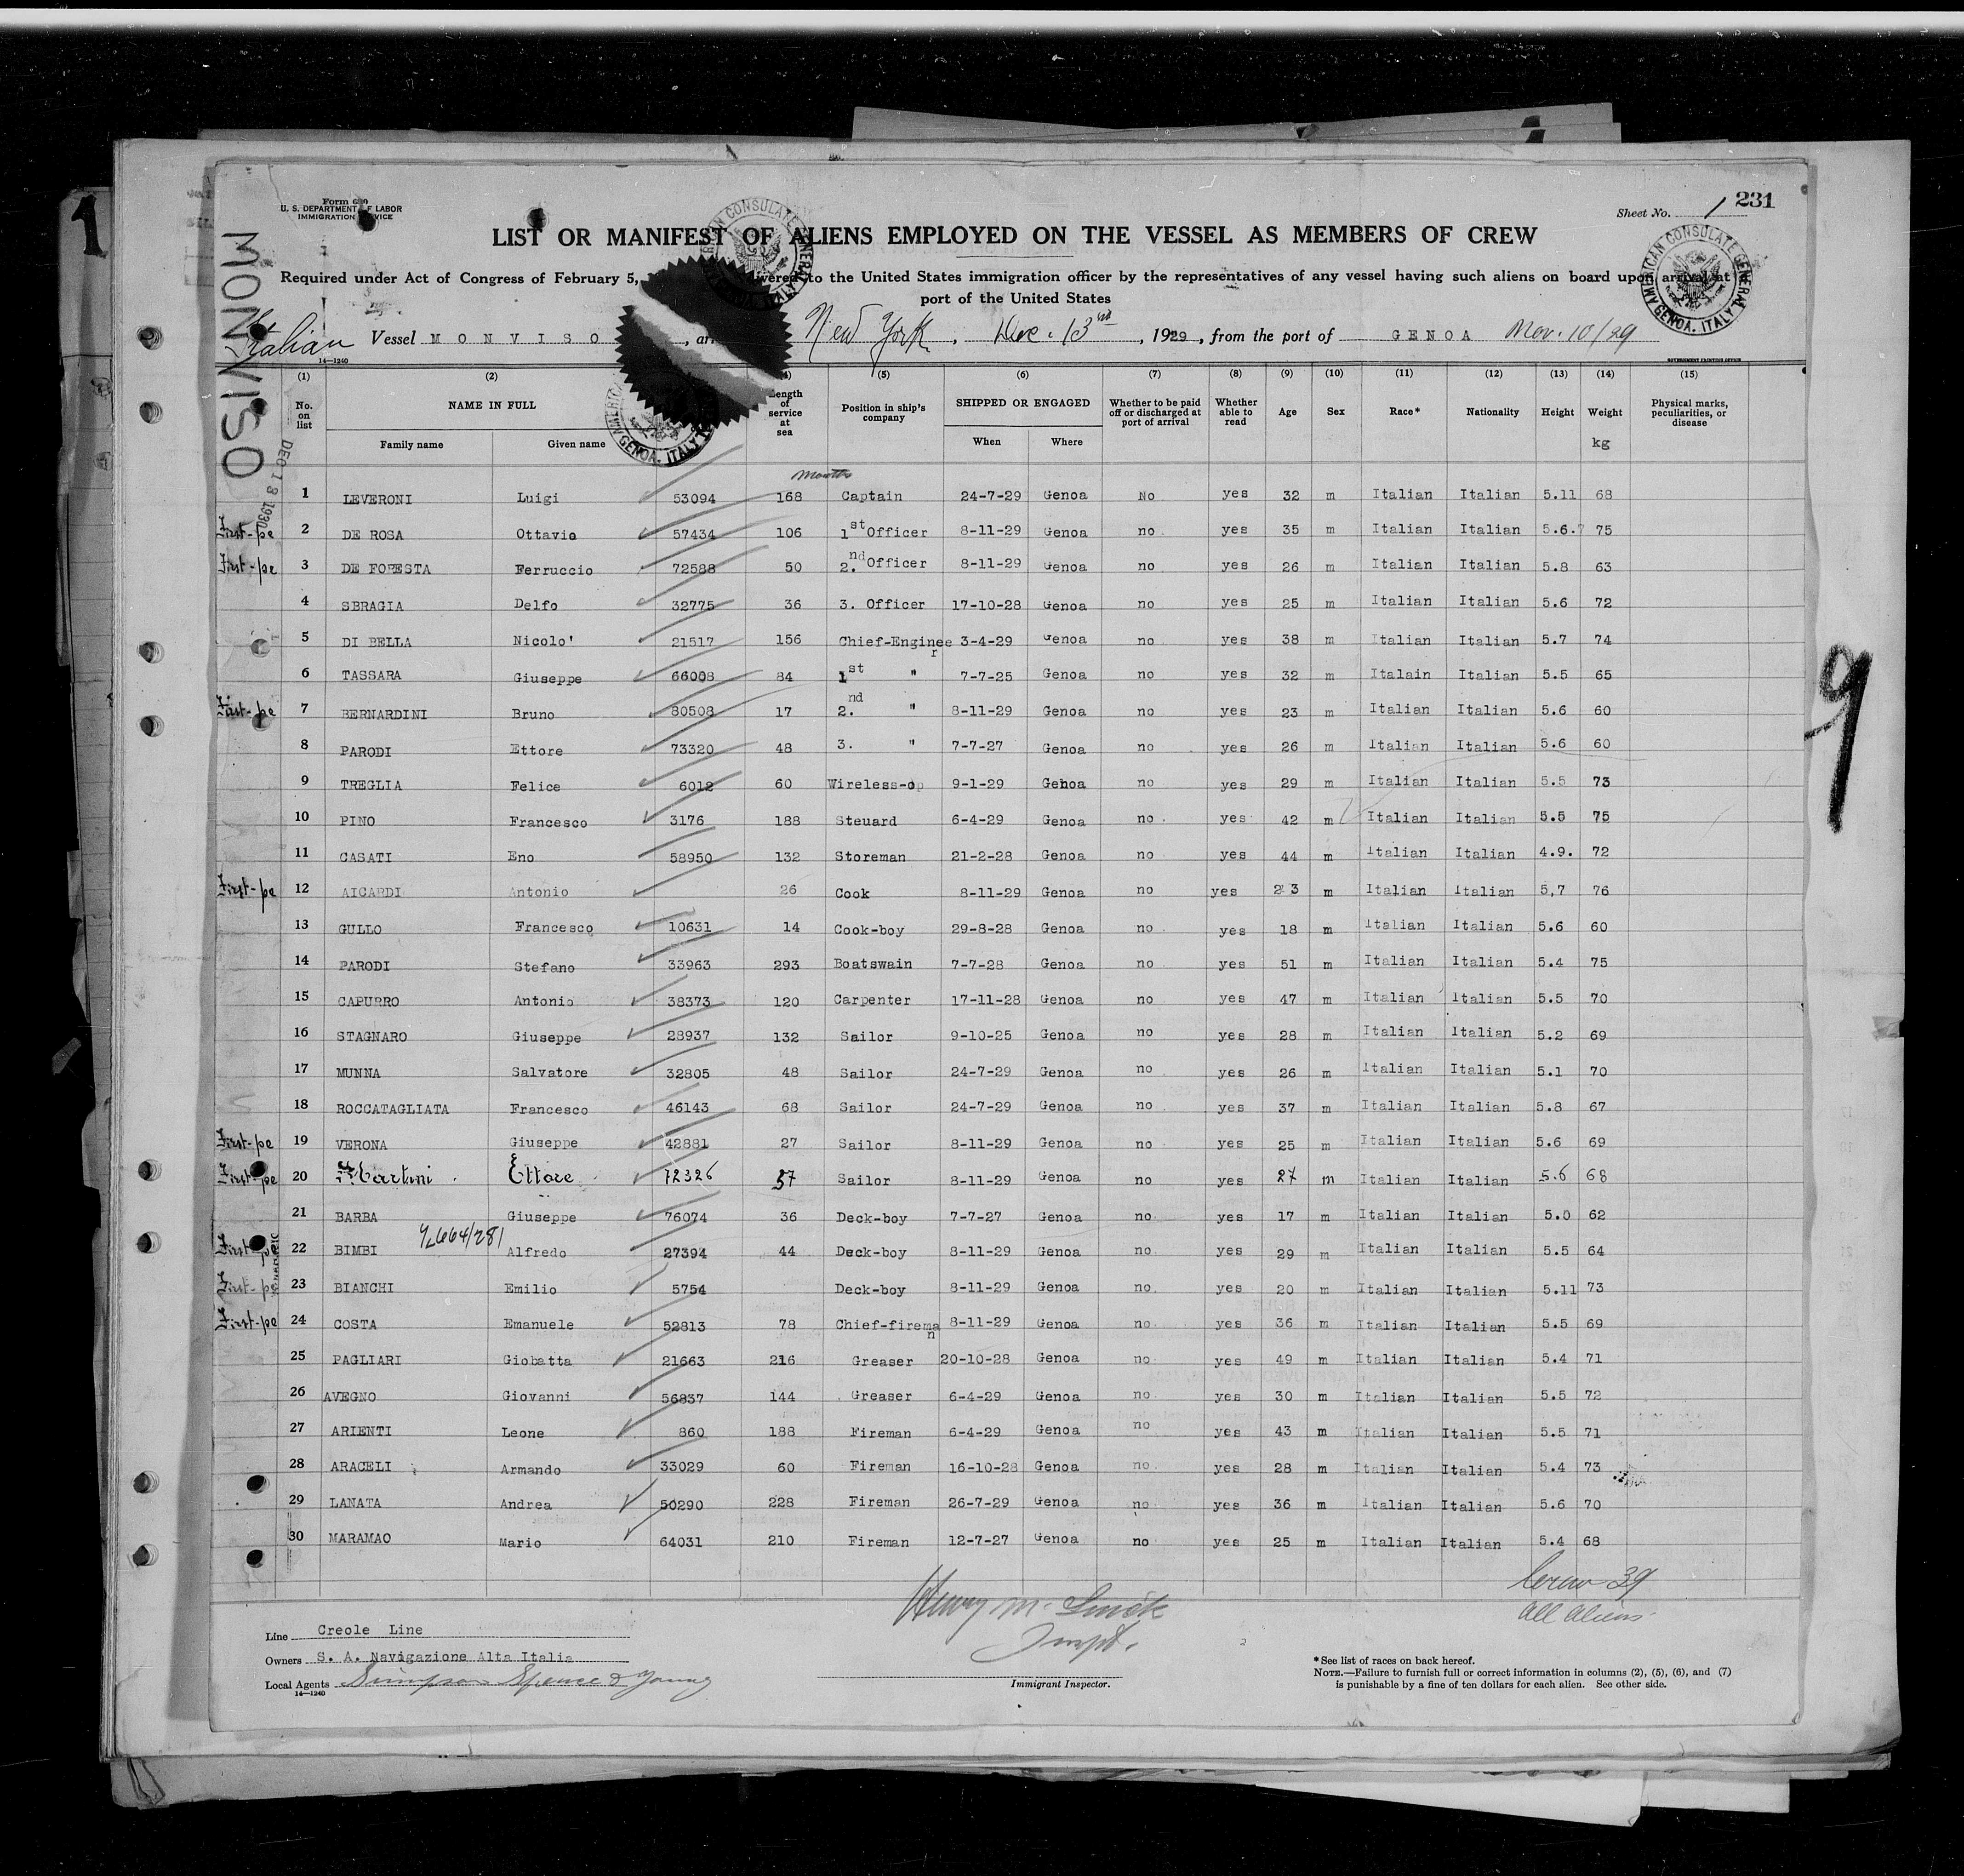 1
231
Form 680
U. S. DEPARTMENT OF LABOR
IMMIGRATION SERVICE
Sheet No. 1
LIST OR MANIFEST OF ALIENS EMPLOYED ON THE VESSEL AS MEMBERS OF CREW
Required under Act of Congress of February 5, delivered to the United States immigration officer by the representatives of any vessel having such aliens on board upon arrival at
port of the United States
Italian Vessel MONVISO, arr New York, Dec. 13rd, 1929, from the port of GENOA Nov. 10/29
14—1240
GOVERNMENT PRINTING OFFICE
MONVISO
DEC 13 1930
AMERICAN CONSULATE GENERAL GENOA, ITALY
AMERICAN CONSULATE GENERAL GENOA, ITALY
GENOA, ITALY
(1) (2) (4) (5) (6) (7) (8) (9) (10) (11) (12) (13) (14) (15)
No. on list NAME IN FULL Length of service at sea Position in ship's company SHIPPED OR ENGAGED Whether to be paid off or discharged at port of arrival Whether able to read Age Sex Race* Nationality Height Weight Physical marks, peculiarities, or disease
Family name Given name When Where kg
months
1 LEVERONI Luigi 53094 168 Captain 24-7-29 Genoa No yes 32 m Italian Italian 5.11 68
First-pe 2 DE ROSA Ottavio 57434 106 1st Officer 8-11-29 Genoa no yes 35 m Italian Italian 5.6.7 75
First-pe 3 DE FORESTA Ferruccio 72588 50 2.nd Officer 8-11-29 Genoa no yes 26 m Italian Italian 5.8 63
4 SBRAGIA Delfo 32775 36 3. Officer 17-10-28 Genoa no yes 25 m Italian Italian 5.6 72
5 DI BELLA Nicolo' 21517 156 Chief-Engineer 3-4-29 Genoa no yes 38 m Italian Italian 5.7 74
6 TASSARA Giuseppe 66008 84 1st " 7-7-25 Genoa no yes 32 m Italain Italian 5.5 65
First-pe 7 BERNARDINI Bruno 80508 17 2.nd " 8-11-29 Genoa no yes 23 m Italian Italian 5.6 60
8 PARODI Ettore 73320 48 3. " 7-7-27 Genoa no yes 26 m Italian Italian 5.6 60
9 TREGLIA Felice 6012 60 Wireless-op 9-1-29 Genoa no yes 29 m Italian Italian 5.5 73
10 PINO Francesco 3176 188 Steuard 6-4-29 Genoa no yes 42 m Italian Italian 5.5 75
11 CASATI Eno 58950 132 Storeman 21-2-28 Genoa no yes 44 m Italian Italian 4.9. 72
First-pe 12 AICARDI Antonio 26 Cook 8-11-29 Genoa no yes 23 m Italian Italian 5,7 76
13 GULLO Francesco 10631 14 Cook-boy 29-8-28 Genoa no yes 18 m Italian Italian 5.6 60
14 PARODI Stefano 33963 293 Boatswain 7-7-28 Genoa no yes 51 m Italian Italian 5.4 75
15 CAPURRO Antonio 38373 120 Carpenter 17-11-28 Genoa no yes 47 m Italian Italian 5.5 70
16 STAGNARO Giuseppe 28937 132 Sailor 9-10-25 Genoa no yes 28 m Italian Italian 5.2 69
17 MUNNA Salvatore 32805 48 Sailor 24-7-29 Genoa no yes 26 m Italian Italian 5.1 70
18 ROCCATAGLIATA Francesco 46143 68 Sailor 24-7-29 Genoa no yes 37 m Italian Italian 5.8 67
First-pe 19 VERONA Giuseppe 42881 27 Sailor 8-11-29 Genoa no yes 25 m Italian Italian 5.6 69
First-pe 20 Martini Ettore 72326 57 Sailor 8-11-29 Genoa no yes 27 m Italian Italian 5.6 68
21 BARBA Giuseppe 76074 36 Deck-boy 7-7-27 Genoa no yes 17 m Italian Italian 5.0 62
First-pe 22 BIMBI 4/664/281 Alfredo 27394 44 Deck-boy 8-11-29 Genoa no yes 29 m Italian Italian 5.5 64
First-pe 23 BIANCHI Emilio 5754 Deck-boy 8-11-29 Genoa no yes 20 m Italian Italian 5.11 73
First-pe 24 COSTA Emanuele 52813 78 Chief-fireman 8-11-29 Genoa no yes 36 m Italian Italian 5.5 69
25 PAGLIARI Giobatta 21663 216 Greaser 20-10-28 Genoa no yes 49 m Italian Italian 5.4 71
26 AVEGNO Giovanni 56837 144 Greaser 6-4-29 Genoa no yes 30 m Italian Italian 5.5 72
27 ARIENTI Leone 860 188 Fireman 6-4-29 Genoa no yes 43 m Italian Italian 5.5 71
28 ARACELI Armando 33029 60 Fireman 16-10-28 Genoa no yes 28 m Italian Italian 5.4 73
29 LANATA Andrea 50290 228 Fireman 26-7-29 Genoa no yes 36 m Italian Italian 5.6 70
30 MARAMAO Mario 64031 210 Fireman 12-7-27 Genoa no yes 25 m Italian Italian 5.4 68
9
Crew 39
all aliens
Henry M.
Inspt.
Immigrant Inspector.
Line Creole Line
Owners S. A. Navigazione Alta Italia
Local Agents Simpson Spence & Young
14—1240
*See list of races on back hereof.
NOTE.—Failure to furnish full or correct information in columns (2), (5), (6), and (7)
is punishable by a fine of ten dollars for each alien. See other side.